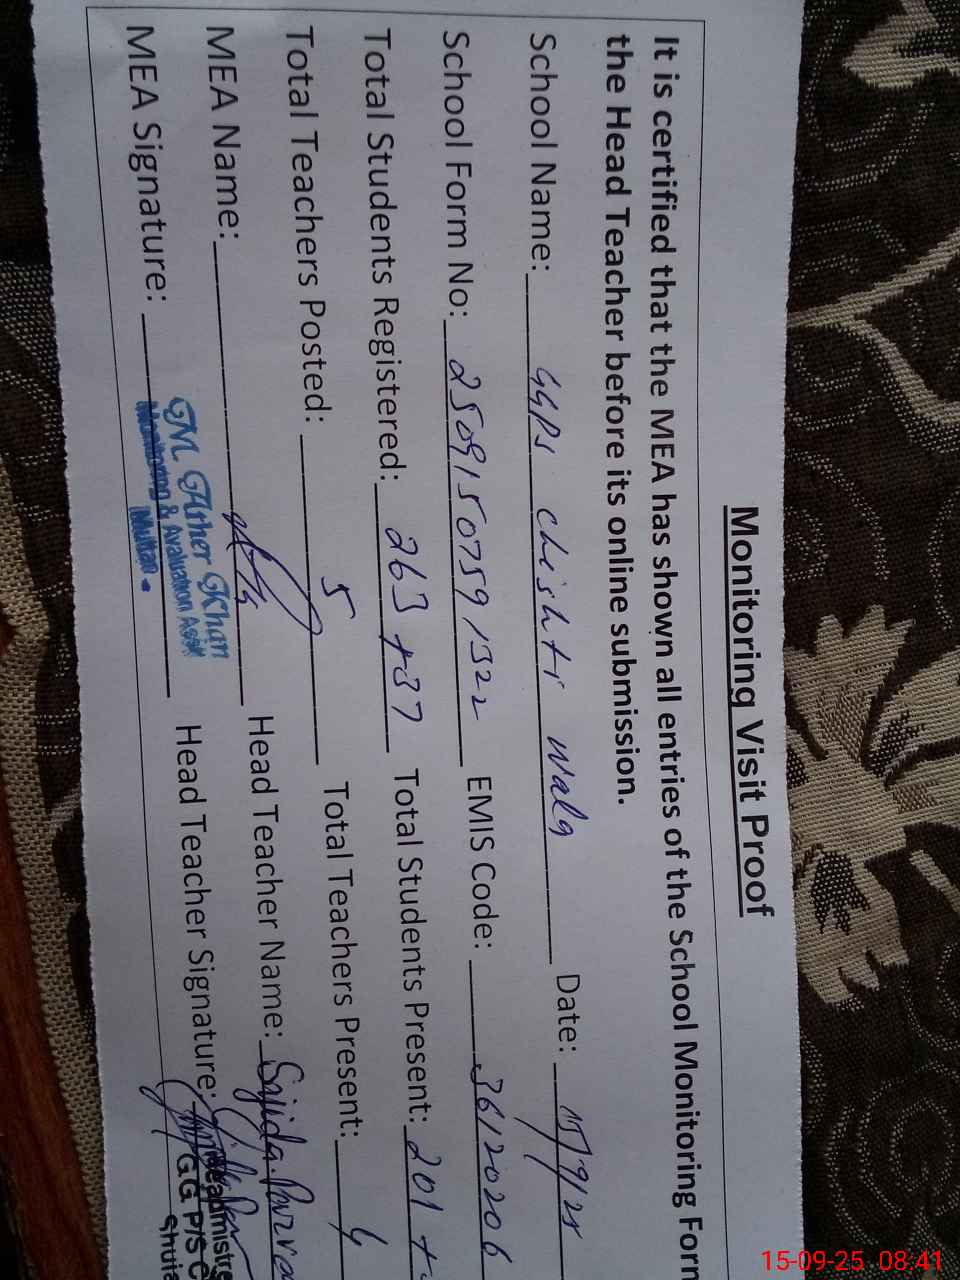 Monitoring Visit Proof
It is certified that the MEA has shown all entries of the School Monitoring Form
the Head Teacher before its online submission.
School Name: GGPS chishti wala Date: 15/9/25
School Form No: 25091507591322 EMIS Code: 36120206
Total Students Registered: 263 +37 Total Students Present: 201 +
Total Teachers Posted: 5 Total Teachers Present: 4
MEA Name: Head Teacher Name: Sajida Parve
MEA Signature: Head Teacher Signature:
M Ather Khan
Monitoring & Avaluation Asstt
Multan.
Headmistre
GG P/S C
Shuja
15-09-25 08:41